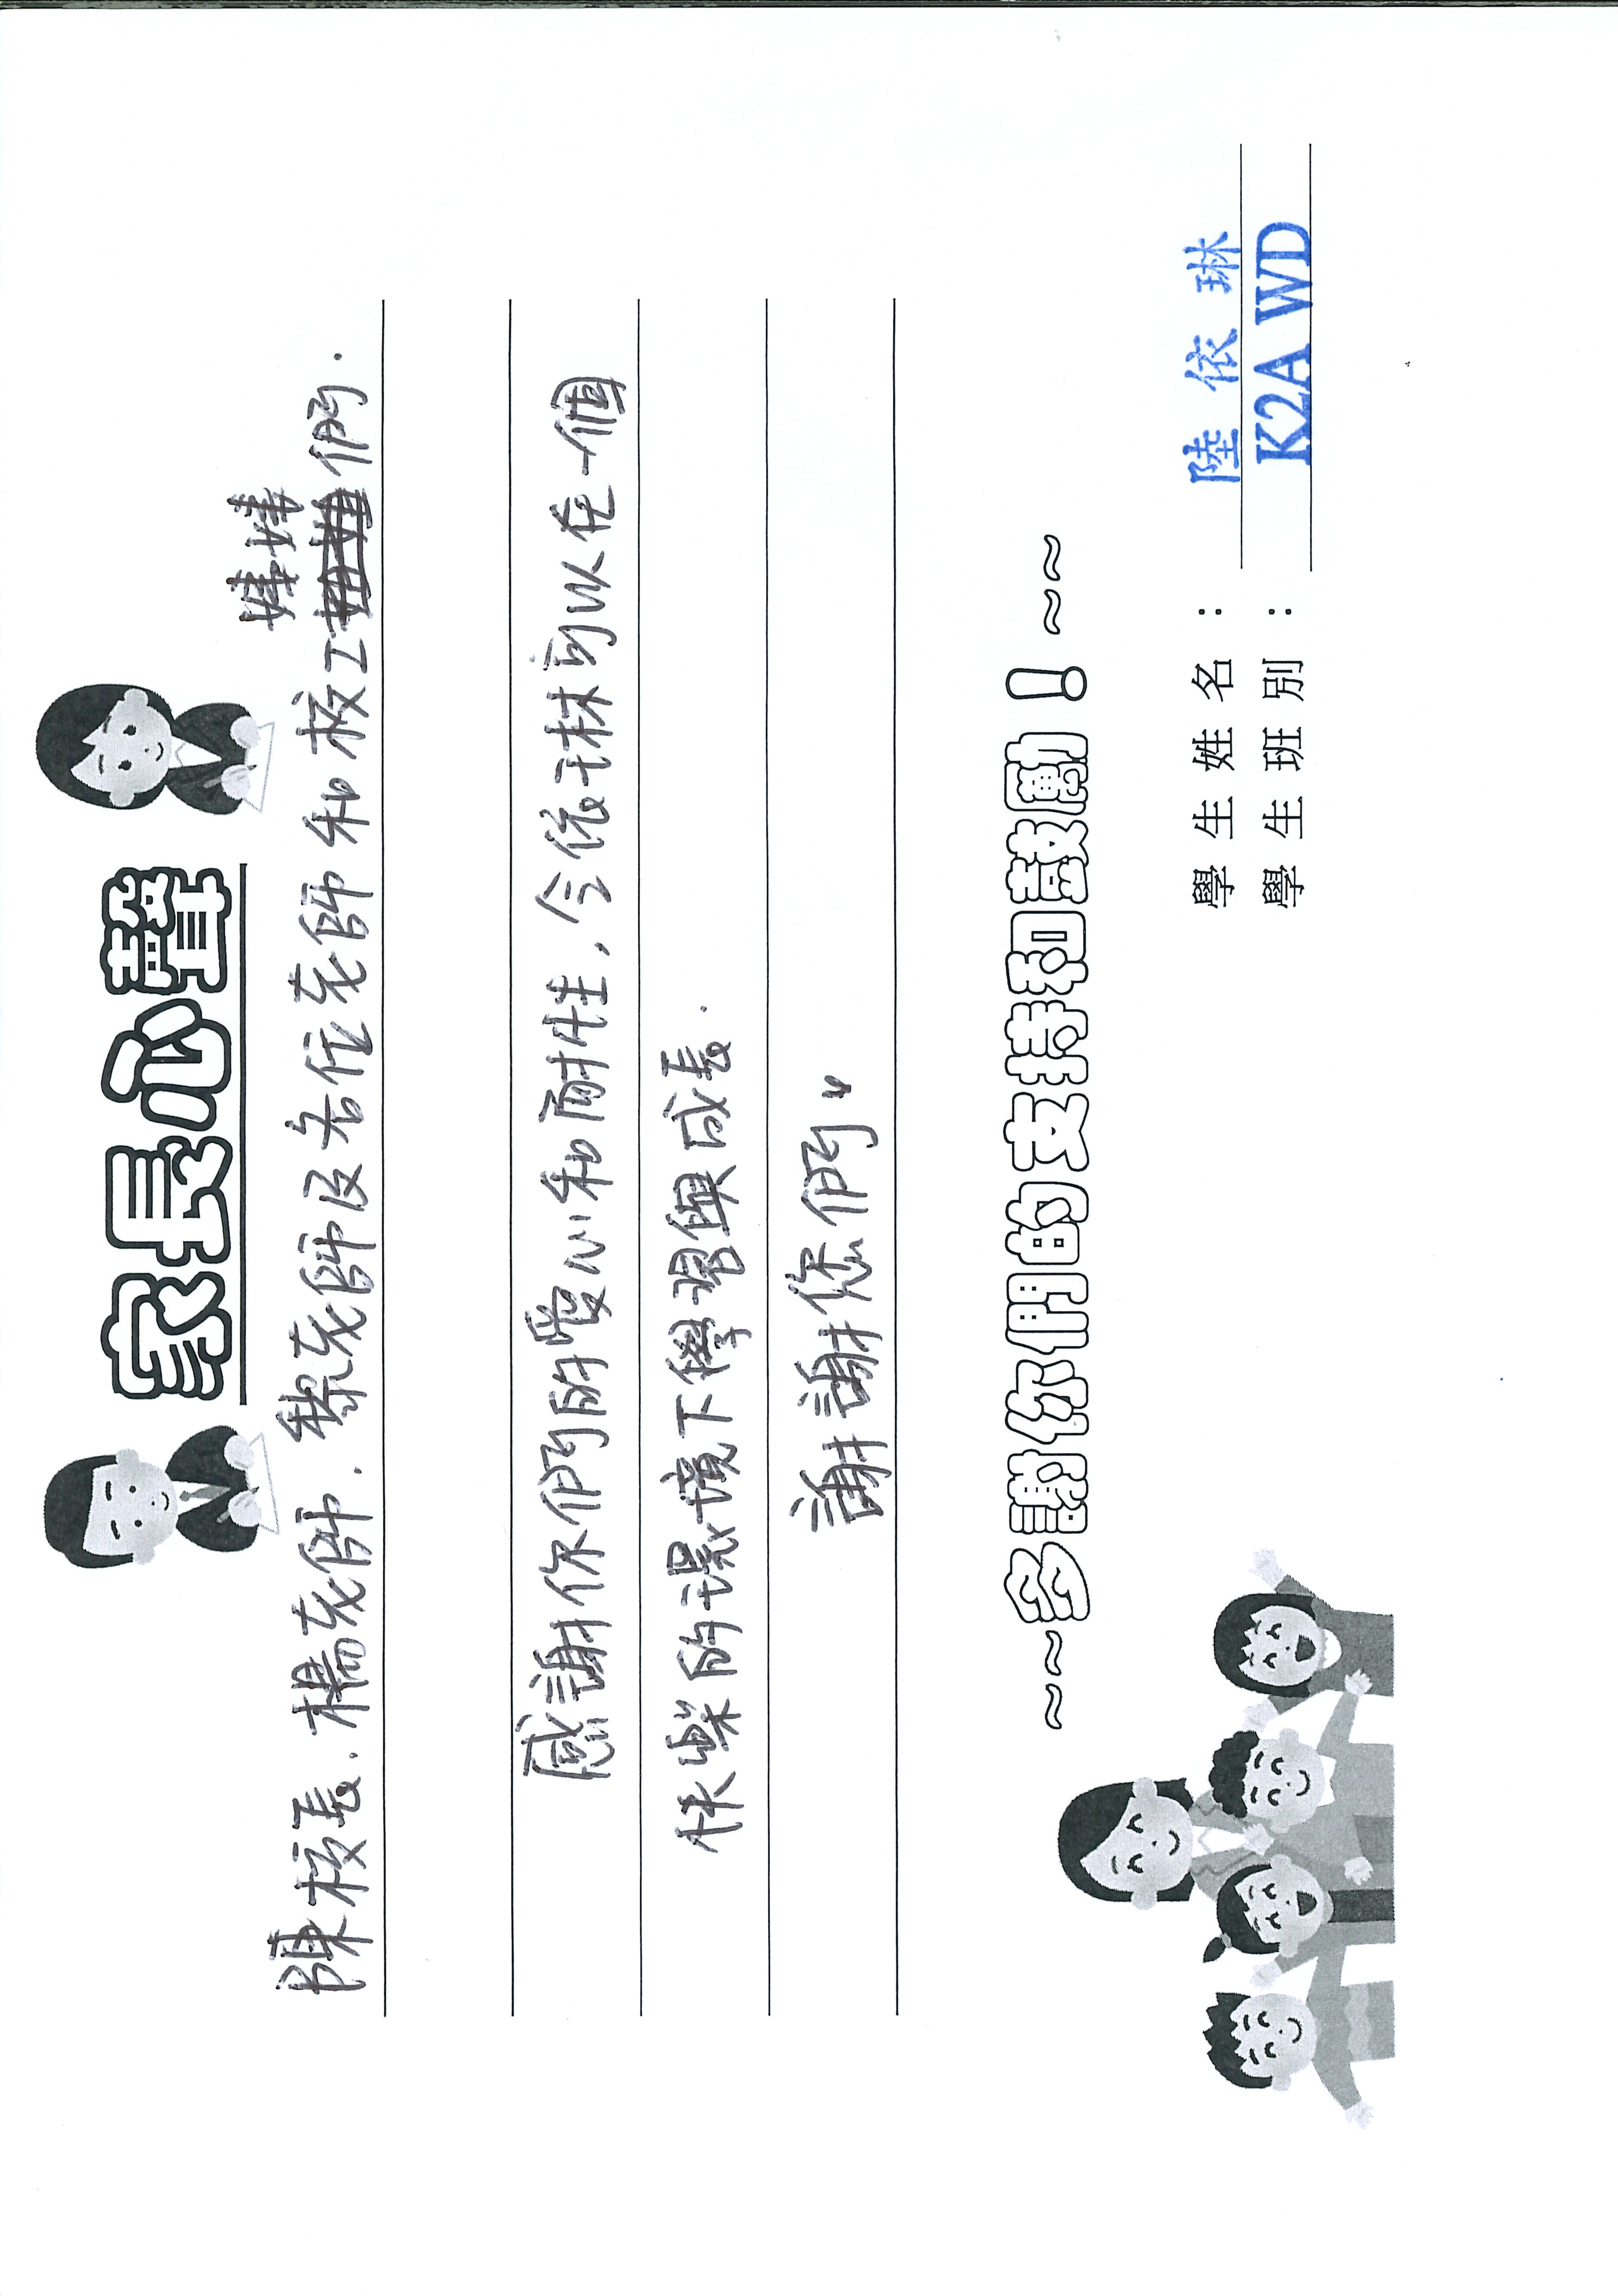 家長心聲
陳校長、楊老師、黎老師及各位老師和校工嬸嬸們.
感謝你們的愛心和耐性，令依琳可以在一個
快樂的環境下學習與成長.
謝謝您們。
~~多謝你們的支持和鼓勵！~~
學生姓名：陸依琳
學生班別：K2A WD